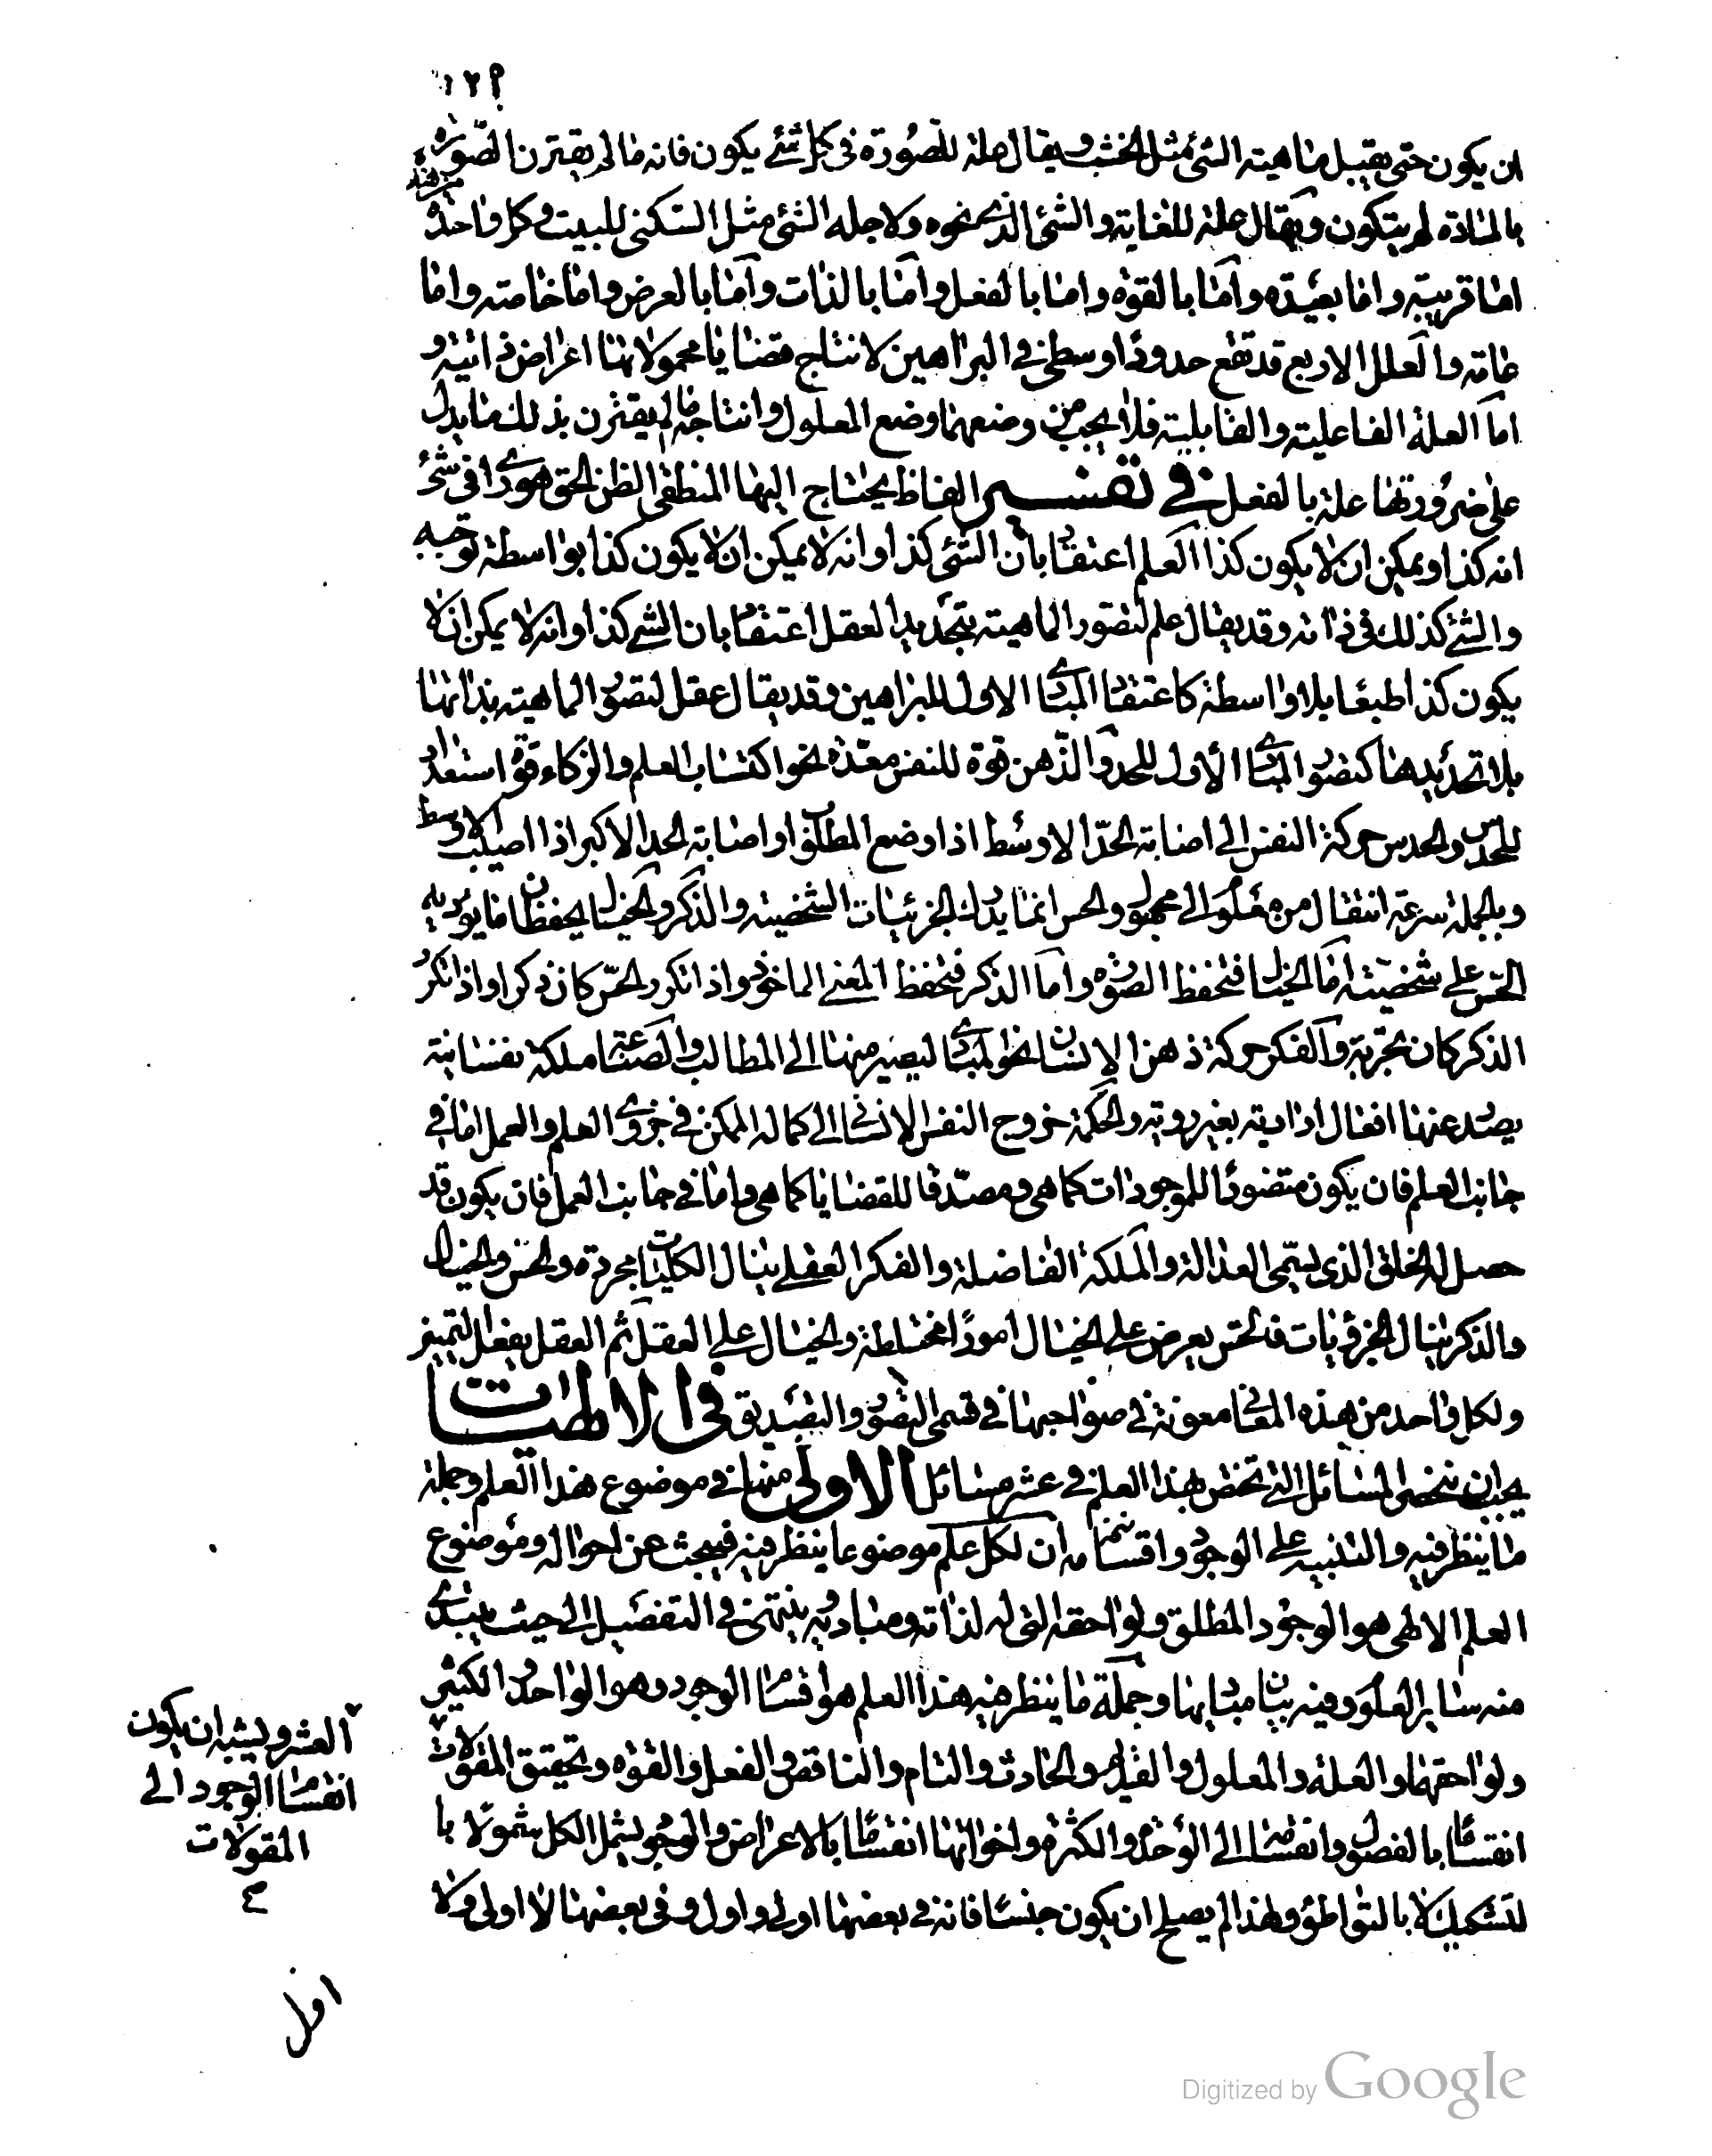 ١٢٩
ان يكون حتى يقبل ماهية الشئ مثل الخشب ويقال علة للصورة فى كل شئ يكون فانه ما لم يقترن الصورة
بالمادة لم يتكون ويقال علة للغاية والشئ الذى نحوه ولاجله الشئ مثل السكنى للبيت وكل واحدة من هذه
اما قريبة واما بعيدة واما بالقوة واما بالفعل واما بالذات واما بالعرض واما خاصة واما
عامة والعلل الاربع قد تقع حدودا وسطى فى البراهين لانتاج قضايا محمولاتها اعراض ذاتية و
اما العلة الفاعلية والقابلية فلا يجب من وضعهما وضع المعلول وانتاجه ما لم يقترن بذلك ما يدل
على ضرورتها علة بالفعل فى تفسير الفاظ يحتاج اليها المنطقى الظن الحق هو راى فى شئ
انه كذا ويمكن ان لا يكون كذا العلم اعتقاد بان الشئ كذا وانه لا يمكن ان لا يكون كذا بواسطة توجبه
والشئ كذلك فى ذاته وقد يقال علم لتصور الماهية بتحديد العقل اعتقاد بان الشئ كذا وانه لا يمكن ان لا
يكون كذا طبعا بلا واسطة كاعتقاد المبادى الاول للبراهين وقد يقال عقل لتصور الماهية بذاتها
بلا تحديدها كتصور المبادى الاول للحد والذهن قوة للنفس معدة نحو اكتساب العلم والزكاء قوة استعداد
للحدس والحدس حركة النفس الى اصابة الحد الاوسط اذا وضع المطلوب او اصابة الحد الاكبر اذا اصيب الاوسط
وبالجملة سرعة انتقال من معلوم الى مجهول والحس انما يدرك الجزئيات الشخصية والذكر والخيال يحفظان ما يؤديه
الحس على شخصيته اما الخيال فتحفظ الصورة واما الذكر فتحفظ المعنى الماخوذ واذا تكرر الحس كان ذكرا واذا تكرر
الذكر كان تجربة والفكر حركة ذهن الانسان نحو المبادى ليصير منها الى المطالب والصناعة ملكة نفسانية
يصدر عنها افعال ارادية بغير روية والحكمة خروج النفس الانسانى الى كماله الممكن فى جزوى العلم والعمل اما فى
جانب العلم فان يكون متصورا للموجودات كما هى ومصدقا للقضايا كما هى واما فى جانب العمل فان يكون قد
حصل له الخلق الذى يسمى العدالة والملكة الفاضلة والفكر العقلى ينال الكليات مجردة والحس والخيال
والذكر ينال الجزويات فالحس يعرض على الخيال امورا مختلطة والخيال على العقل ثم العقل يفعل التمييز
ولكل واحد من هذه المعانى معونة فى صواحبها فى قسمى التصور والتصديق فى الالهيات
يجب ان نحصر المسائل التى تختص بهذا العلم فى عشر مسائل الاولى منها فى موضوع هذا العلم وجملة
ما ينظر فيه والتنبيه على الوجود واقسامه ان لكل علم موضوعا ينظر فيه فيبحث عن احواله وموضوع
العلم الالهى هو الوجود المطلق ولواحقه التى له لذاته ومباديه ينتهى فى التفصيل الى حيث يبتدى
منه ساير العلوم وفيه بيان مباديها وجملة ما ينظر فيه هذا العلم هو اقسام الوجود وهو الواحد والكثير
ولواحقها والعلة والمعلول والقديم والحادث والتام والناقص والفعل والقوة وتحقيق المقولات
انقساما بالفصول وانقسامه الى الوحدة والكثرة واخواتها انقساما بالاعراض والوجود يشمل الكل شمولا با
لتشكيك لا بالتواطؤ ولهذا لم يصلح ان يكون جنسا فانه فى بعضها اولى واول وفى بعضها لا اولى ولا
العشر ويشبه ان يكون
انقسام الوجود الى
المقولات
اول
Digitized by Google